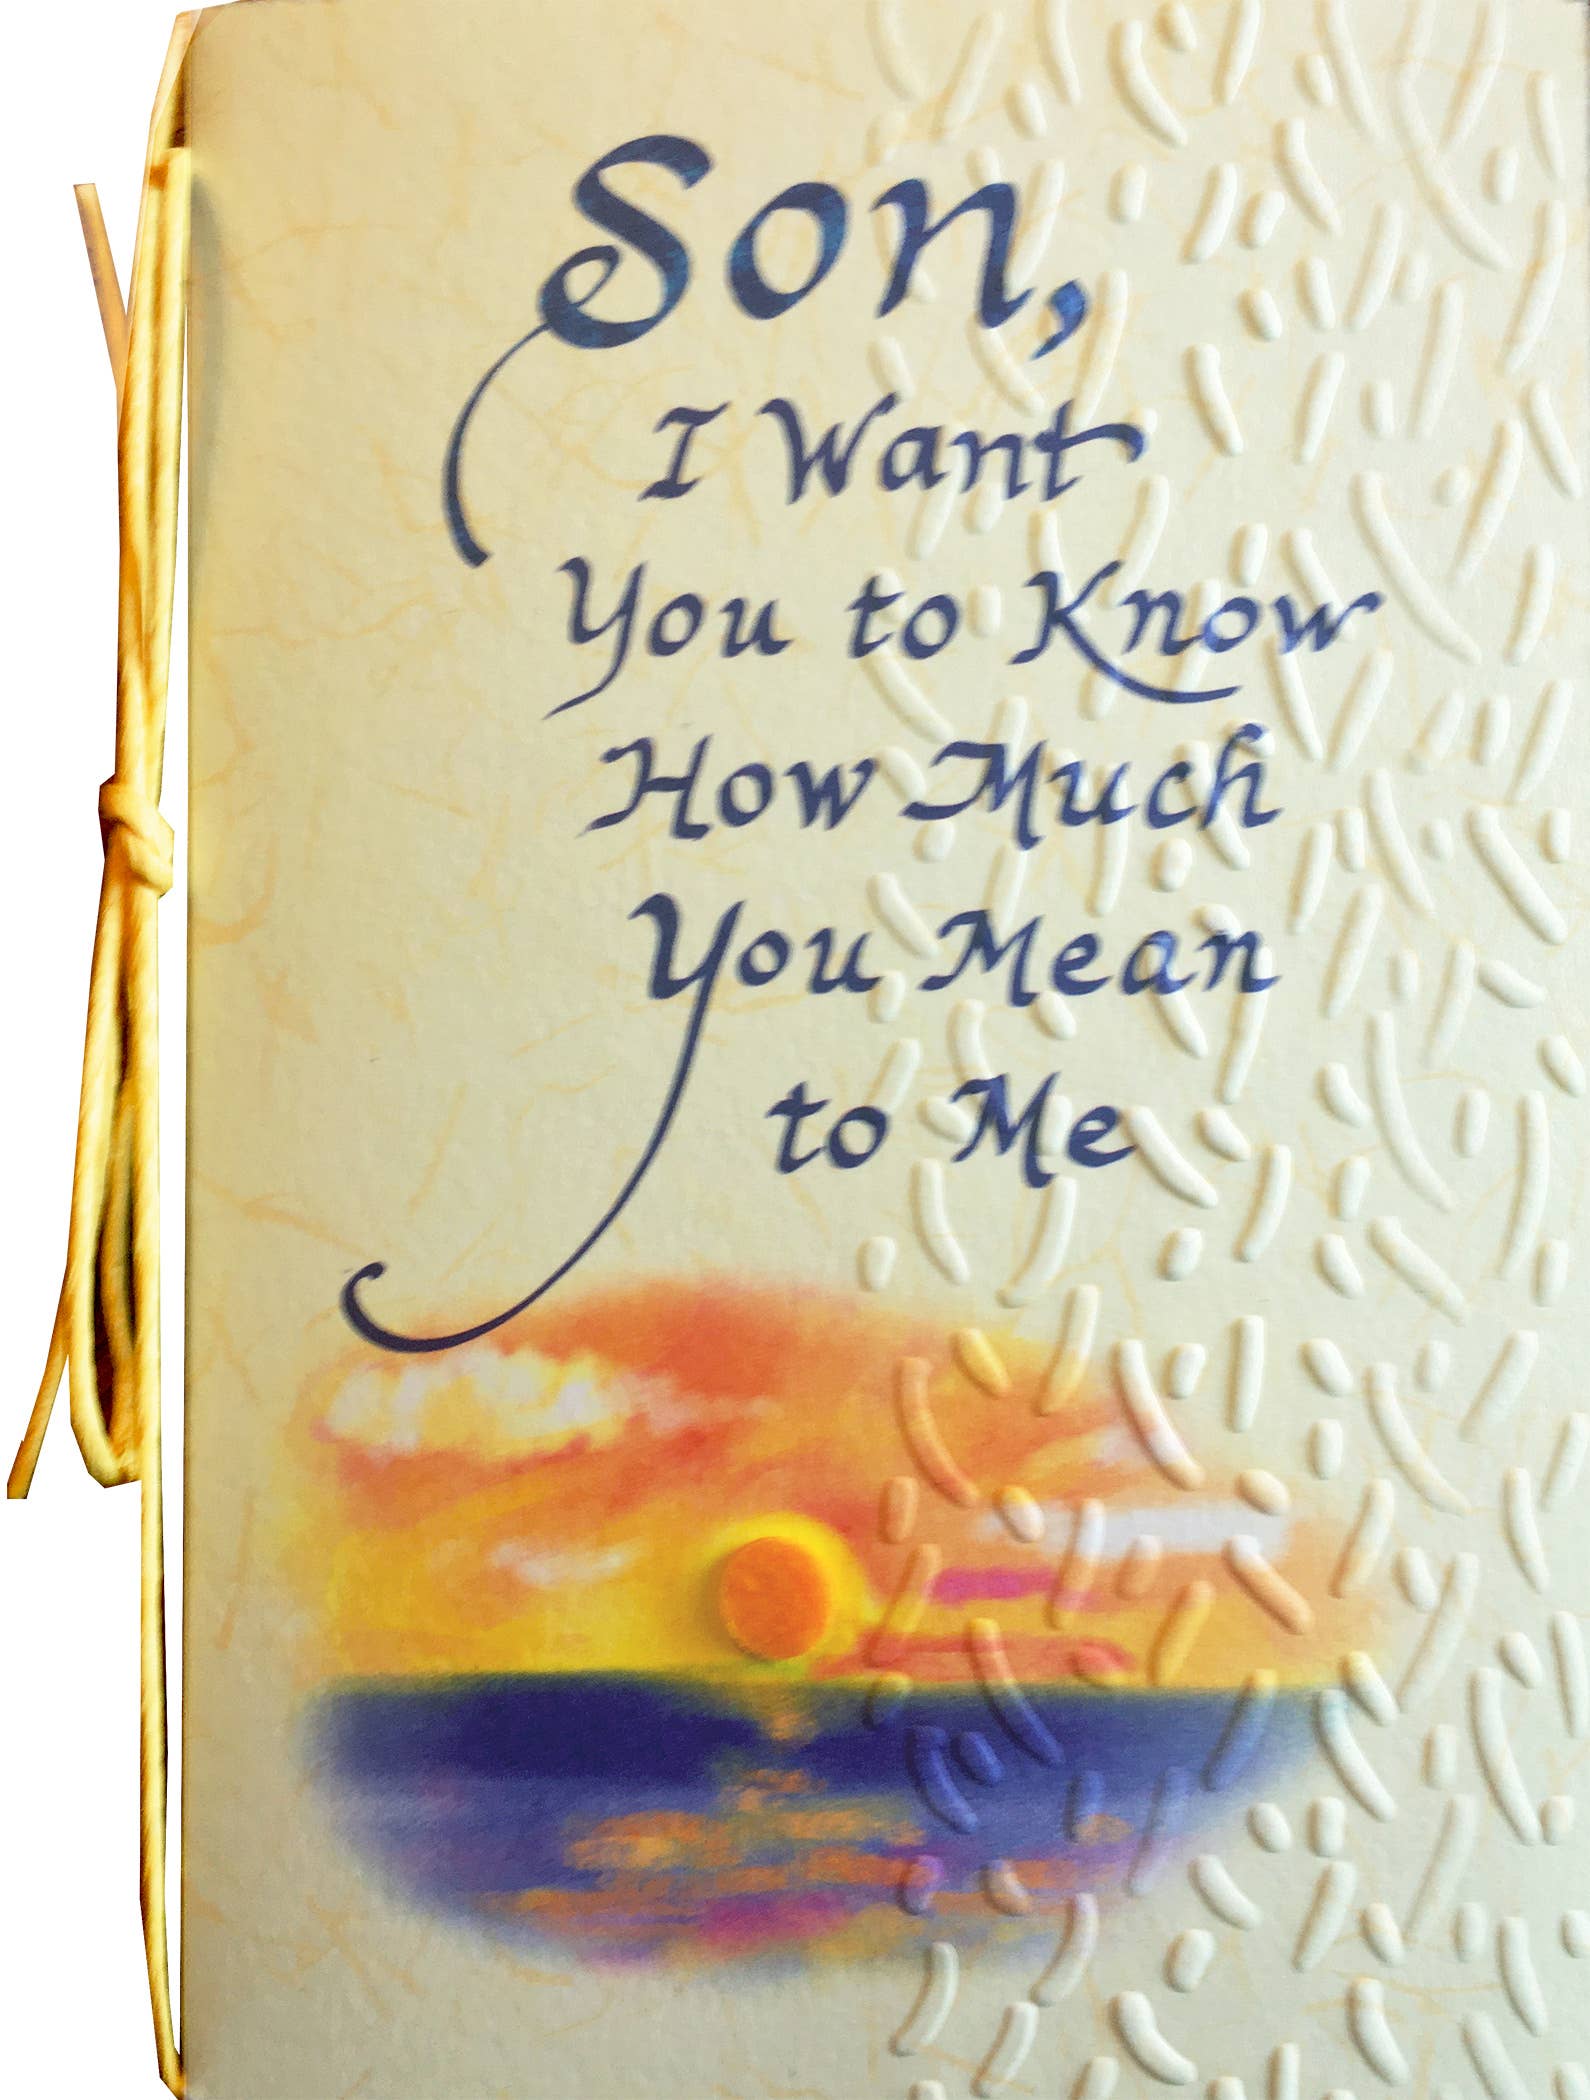 Son,
I Want
You to Know
How Much
You Mean
to Me